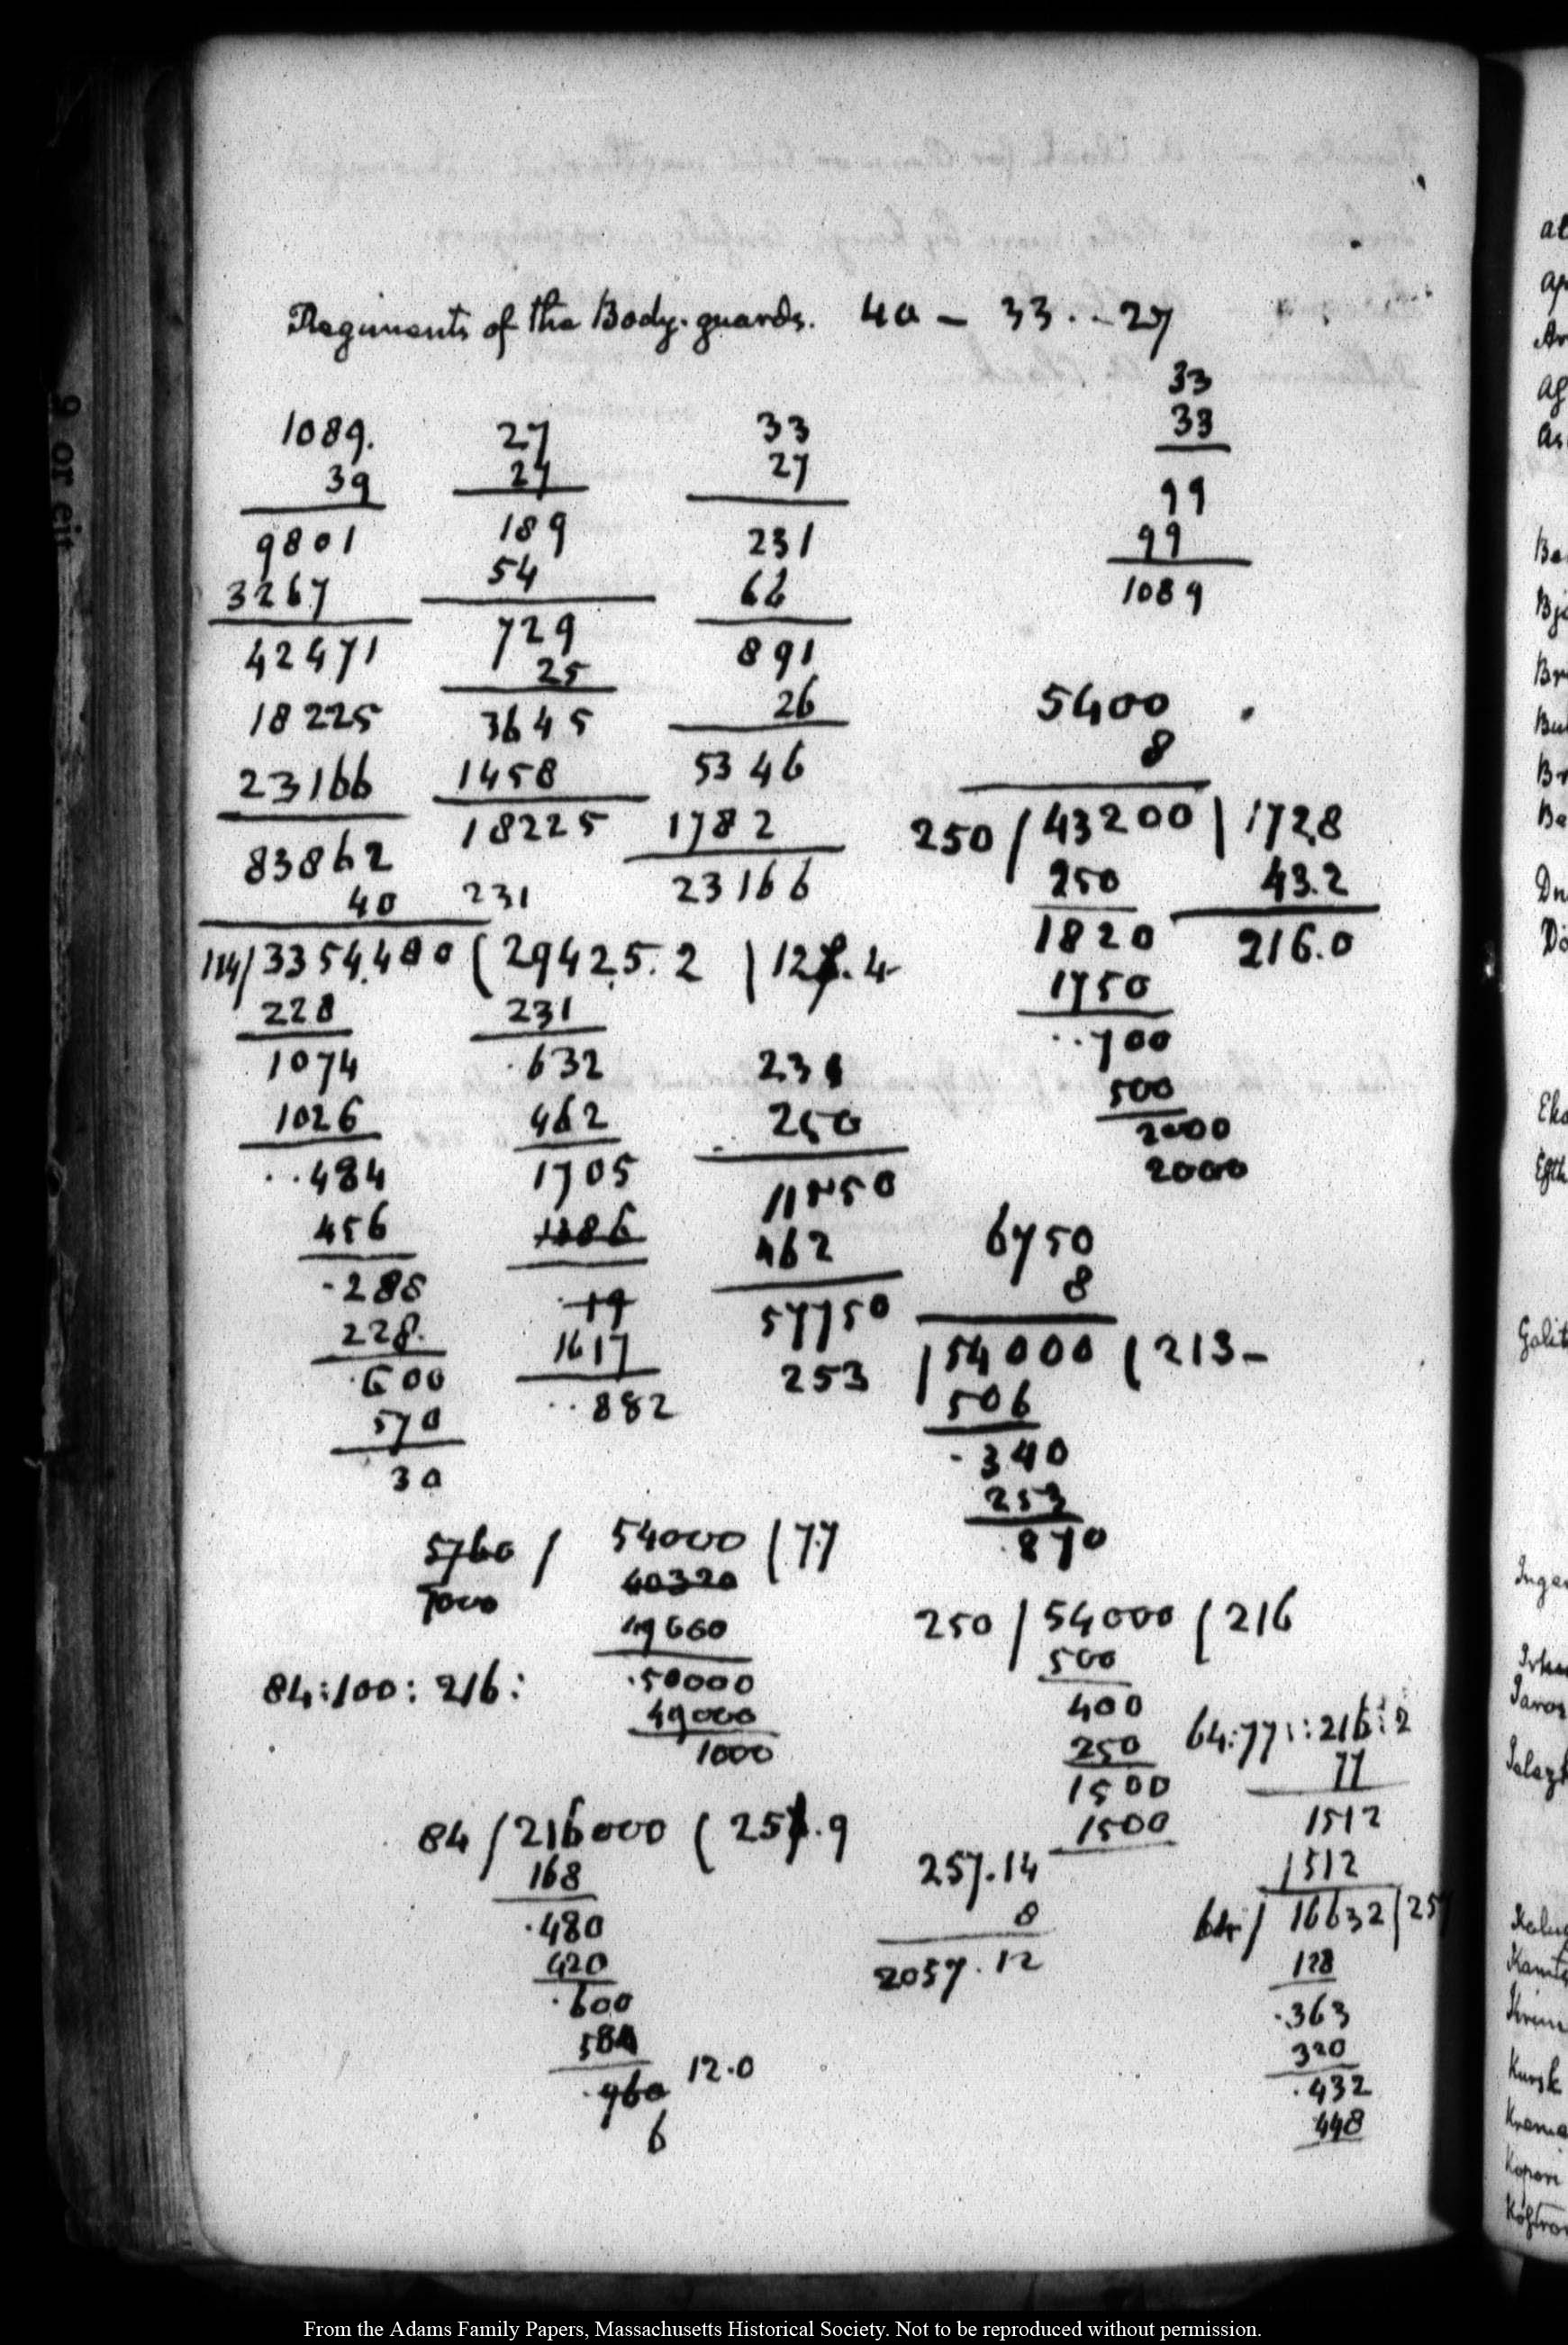 Regiments of the Body-guards. 40 - 33 . . 27
33
33
99
99
1089
1089.
39
9801
3267
42471
18225
23166
83862
40
114/3354.480 ( 29425.2 | 127.4
228
1074
1026
. . 484
456
. 288
228.
. 600
570
30
27
27
189
54
729
25
3645
1458
18225
231
231
. 632
462
1705
1386
. 19
1617
. . 882
33
27
231
66
891
26
5346
1782
23166
231
250
11550
462
57750
5400
8
250 / 43200 | 172.8
250
1820
1750
. . 700
500
2000
2000
43.2
216.0
6750
8
253 / 54000 ( 213 -
506
- 340
253
. 870
5760 / 54000 | 7.7
7000
40320
49660
. 50000
49000
1000
84 : 100 : 216 :
250 / 54000 ( 216
500
400
250
1500
1500
64 : 77 : : 216 :
77
1512
1512
64 / 16632 | 25
128
. 363
320
. 432
448
84 / 216000 ( 257.9
168
. 480
420
. 600
. 960
12.0
6
257.14
8
2057.12
9 or eit
al
Ap
Ar
Af
As
Ba
Bj
Br
Bu
Br
Ba
Dn
Do
Golit
Kursk
Kopori
From the Adams Family Papers, Massachusetts Historical Society. Not to be reproduced without permission.